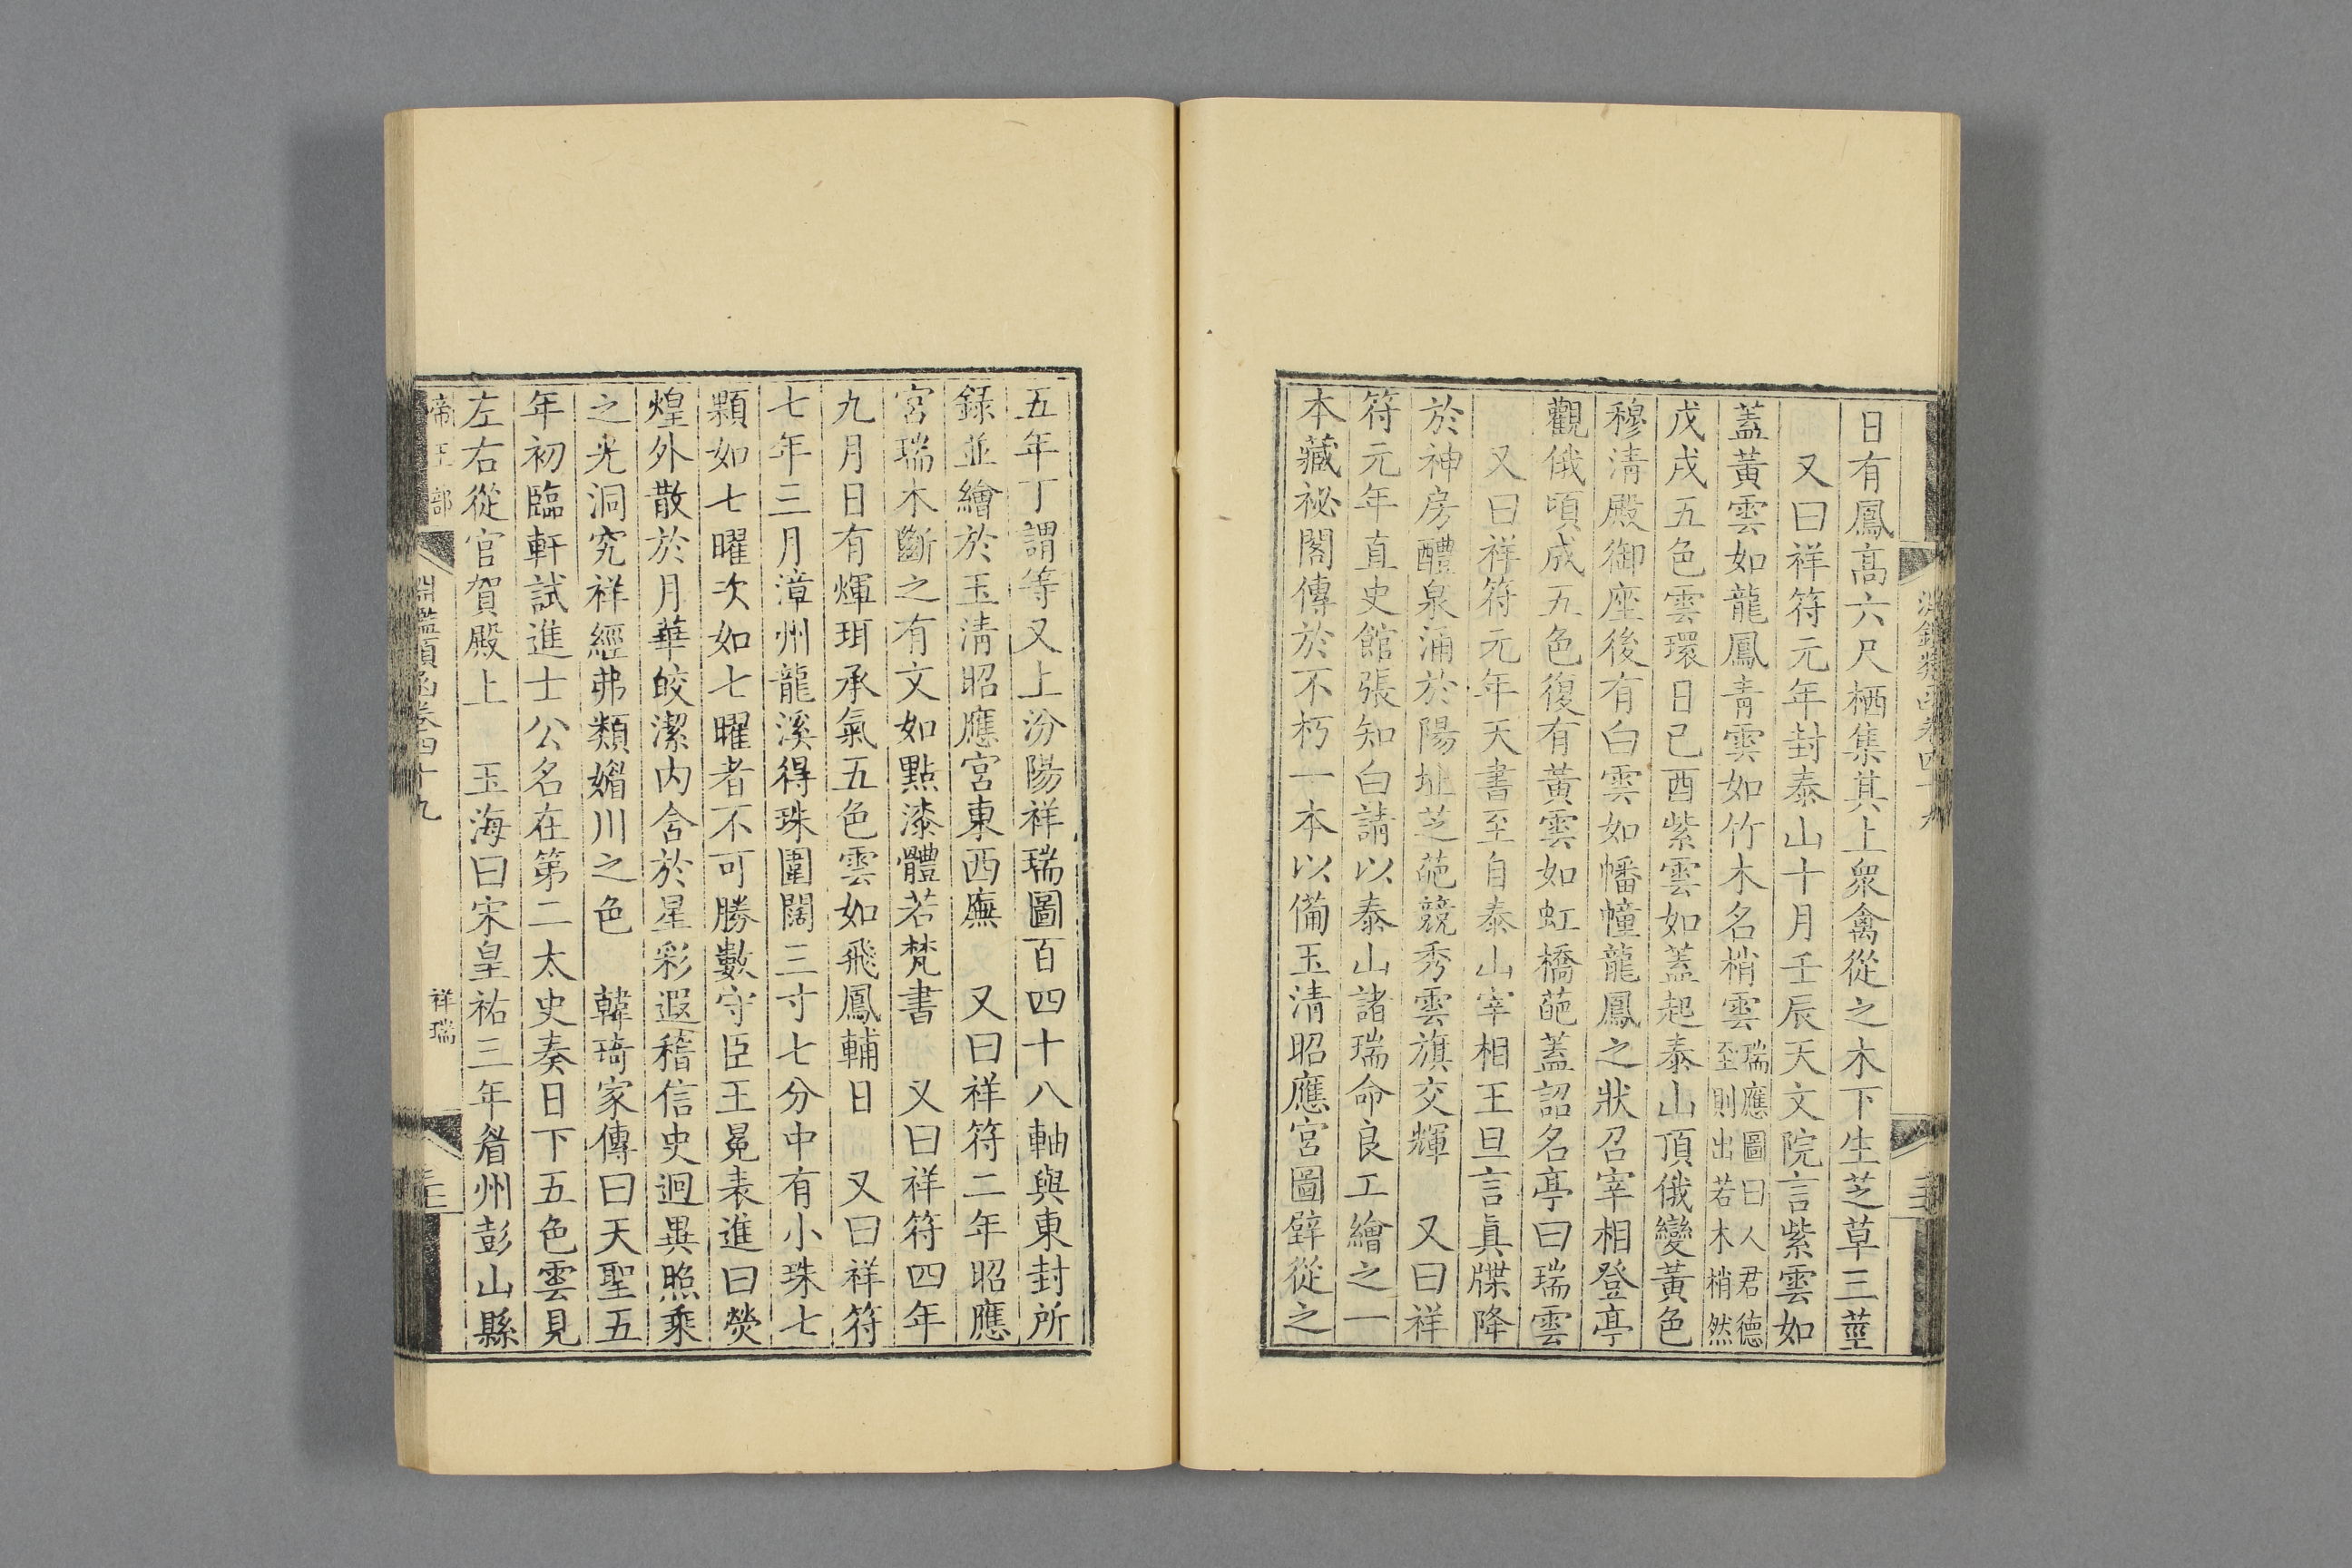 日有鳳高六尺栖集其上衆禽從之木下生芝草三莖
又曰祥符元年封泰山十月壬辰天文院言紫雲如
蓋黃雲如龍鳳青雲如竹木名梢雲瑞應圖曰人君德至則出若木梢然
戊戌五色雲環日己酉紫雲如蓋起泰山頂俄變黃色
穆清殿御座後有白雲如幡幢龍鳳之狀召宰相登亭
觀俄頃成五色復有黃雲如虹橋葩蓋詔名亭曰瑞雲
又曰祥符元年天書至自泰山宰相王旦言眞牒降
於神房醴泉涌於陽址芝葩競秀雲旗交輝 又曰祥
符元年直史館張知白請以泰山諸瑞命良工繪之一
本藏祕閣傳於不朽一本以備玉清昭應宮圖壁從之
五年丁謂等又上汾陽祥瑞圖百四十八軸與東封所
錄並繪於玉清昭應宮東西廡 又曰祥符二年昭應
宮瑞木斷之有文如點漆體若梵書 又曰祥符四年
九月日有煇珥承氣五色雲如飛鳳輔日 又曰祥符
七年三月漳州龍溪得珠圍闊三寸七分中有小珠七
顆如七曜次如七曜者不可勝數守臣王冕表進曰熒
煌外散於月華皎潔內含於星彩遐稽信史迥異照乘
之光洞究祥經弗類媚川之色 韓琦家傳曰天聖五
年初臨軒試進士公名在第二太史奏日下五色雲見
左右從官賀殿上 玉海曰宋皇祐三年眉州彭山縣
帝王部 淵鑑類函卷四十九 祥瑞